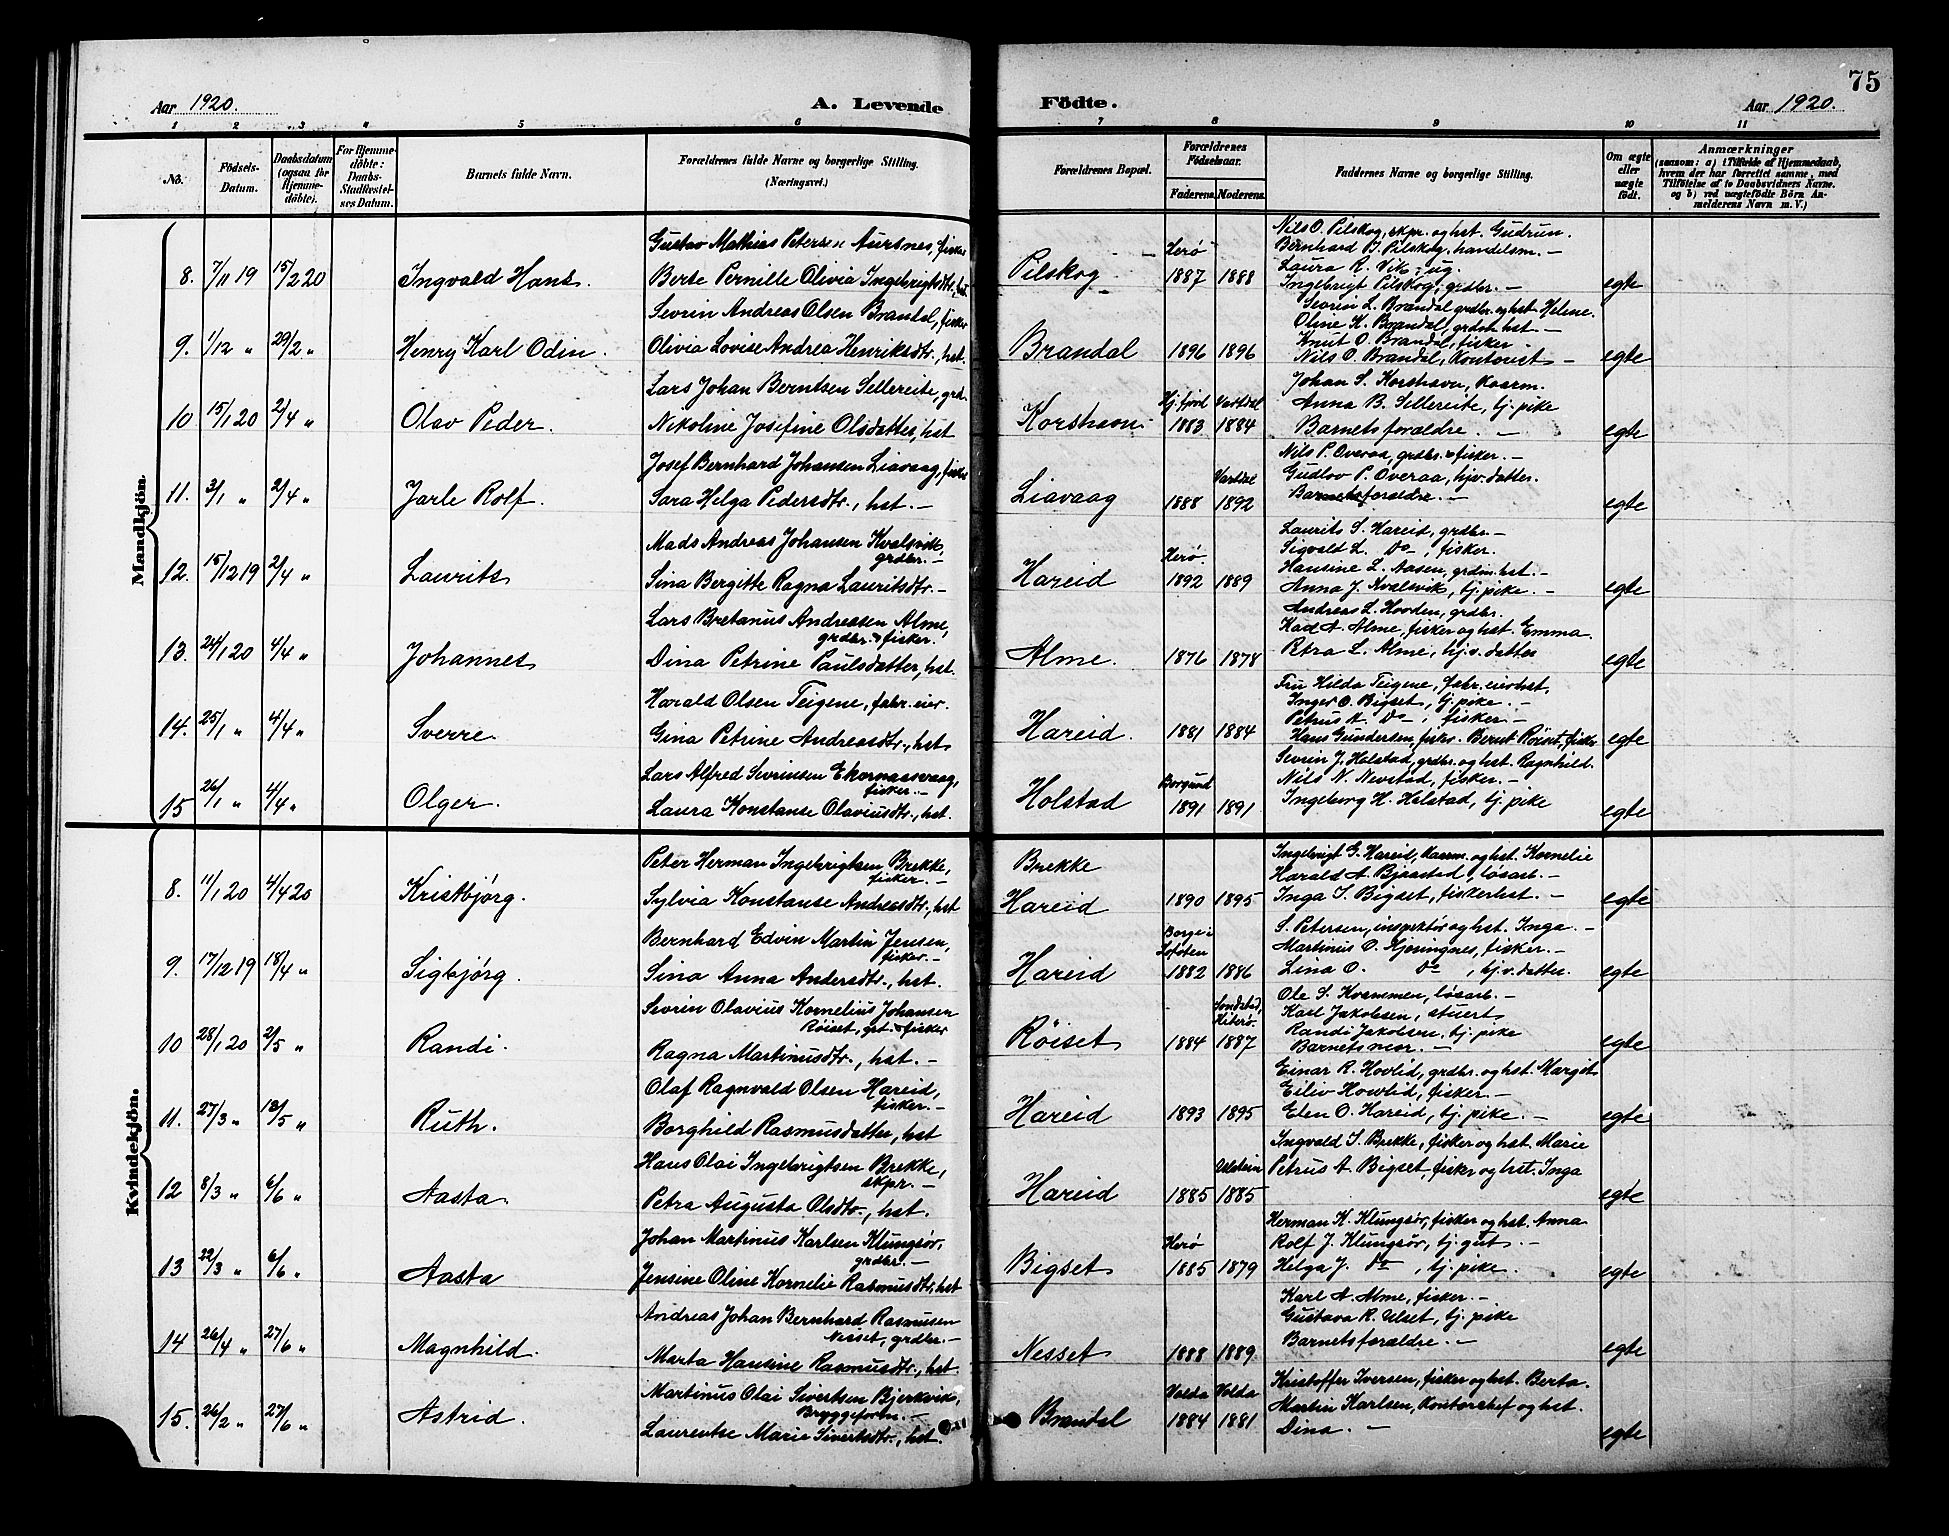 75
Aar 1920.
A. Levende
Födte.
Aar 1920.
1 2 3 4 5 6 7 8 9 10 11
No.
Födsels-Datum.
Daabsdatum (ogsaa for Hjemmedöbte).
For Hjemmedöbte: Daabs-Stadfestelses Datum.
Barnets fulde Navn.
Forældrenes fulde Navne og borgerlige Stilling.
(Næringsvei.)
Forældrenes Bopæl.
Forældrenes Födselsaar.
Faderens. Moderens.
Faddernes Navne og borgerlige Stilling.
Om ægte eller uægte födt.
Anmærkninger
(saasom: a) i Tilfælde af Hjemmedaab, hvem der har forrettet samme, med Tilföielse af to Daabsvidners Navne. og b) ved uægtefödte Börn Anmelderens Navn m. V.)
Mandkjön.
Gustav Mathias Petersen Aursnes, fisker
8. 7/11 19 15/2 20 Ingvald Hans. Berte Pernille Olivia Ingebrigtsdtr, hst.
Pilskog. Herö 1887 1888
Nils O. Pilskog, skpr. og hst. Gudrun.
Bernhard B. Pilskog, handelsm. —
Laura R. Vik, ug.
Ingebrigt Pilskog, grdbr. — egte
Sevrin Andreas Olsen Brandal, fisker
9. 1/12 " 29/2 " Henry Karl Odin. Olivia Lovise Andrea Henriksdtr., hst.
Brandal 1896 1896
Sevrin L. Brandal grdbr. og hst. Helene.
Oline K. Brandal, grdm. hst. —
Knut O. Brandal, fisker —
Nils O. Brandal, Kontorist — egte
Lars Johan Berntsen Sellereite, grdb.
10 15/1 20 2/4 " Olav Peder. Nikoline Josefine Olsdatter, hst
Korshavn. Hj.fjord 1883 Vartdal 1884
Johan S. Korshavn, Kaarm.
Anna B. Sellereite, tj. pike
Barnets forældre. — egte
Josef Bernhard Johansen Liavaag, fisker
11. 3/1 " 2/4 " Jarle Rolf. Sara Helga Pedersdtr., hst. —
Liavaag 1888 Vartdal 1892
Nils P. Overaa, grdbr. & fisker. —
Gudlov P. Overaa, hjv. datter.
Barnets forældre. — egte
Mads Andreas Johansen Kvalsvik,
grdbr. —
12. 15/12 19 2/4 " Laurits Sina Bergitte Ragna Lauritsdtr. —
Hareid Herö. 1892 1889
Laurits S. Hareid, grdbr. —
Sigvald L. Do, fisker.
Hansine L. Aasen, grdm. hst. —
Anna J. Kvalsvik, tj. pike. — egte
Lars Bretanus Andreasen Alme,
grdbr. & fisker.
13. 24/1 20 4/4 " Johannes Dina Petrine Paulsdatter, hst.
Alme. 1876 1878
Andreas L. Hovden, grdbr.
Karl A. Alme, fisker og hst. Emma.
Petra L. Alme, hj.v. datter egte
Harald Olsen Teigene, fabr. eier.
14. 25/1 " 4/4 " Sverre. Gina Petrine Andreasdtr., hst
Hareid. 1881 1884
Fru Hilda Teigene, fabr. eierhst,
Inger O. Bigset, tj. pike. —
Petrus A. Do, fisker. —
Hans Gundersen, fisker. Bernt Röiset, fisker egte
Lars Alfred Sevrinsen Ekornaasvaag,
fisker. —
15 26/1 " 4/4 " Olger. Laura Konstanse Olaviusdtr., hst.
Holstad Borgund 1891 1891
Sevrin J. Holstad, grdbr. og hst. Ragnhild.
Nils N. Nevstad, fisker. —
Ingeborg H. Holstad, tj. pike egte
Kvindekjön.
Peter Herman Ingebrigtsen Brekke,
fisker. —
8. 11/1 20 4/4 20 Kristbjörg. Sylvia Konstanse Andreasdtr., hst
Brekke
Hareid 1890 1895
Ingebrigt G. Hareid, Kaarm. og hst. Kornelie
Harald A. Bjåstad, lösarb. —
Inga S. Bigset, fiskerhst. — egte
Bernhard Edvin Martin Jensen,
fisker. —
9. 17/12 19 18/4 " Sigbjörg. Sina Anna Andersdtr., hst.
Hareid Borge i Lofoten 1882 1886
S. Petersen, inspektör og hst. Inga. —
Martinus O. Hjöringnes, fisker. —
Lina O. Do, hj.v. datter. egte
Sevrin Olavius Kornelius Johansen
Röiset, grb. & fisker
10 28/1 20 2/5 " Randi. Ragna Martinusdtr., hst. —
Röiset 1884 1887
Ole S. Kvammen, lösarb. —
Karl Jakobsen, stuert
Randi Jakobsen, tj. pike
Barnets mor. — egte
Olaf Ragnvald Olsen Hareid,
fisker. —
11. 27/3 " 13/5 " Ruth. Borghild Rasmusdatter, hst
Hareid 1893 1895
Einar R. Hovlid, grdbr. og hst. Margit
Eiliv Hovlid, fisker. —
Elen O. Hareid, tj. pike. — egte
Hans Olai Ingebrigtsen Brekke,
skpr. —
12 8/3 " 6/6 " Aasta. Petra Augusta Olsdtr., hst.
Hareid 1885 Ulstein 1885
Ingvald I. Brekke, fisker og hst. Marie
Petrus A. Bigset, fisker og hst. Inga
egte
Johan Martinus Karlsen Klungsör,
grdbr. —
13 22/3 " 6/6 " Aasta Jensine Oline Kornelie Rasmusdtr, hst
Bigset Herö 1885 1879
Herman K. Klungsör, fisker og hst. Anna
Rolf J. Klungsör, tj. gut. —
Helga J. Do, tj. pike. egte
Andreas Johan Bernhard Rasmusen
Nesset, grdbr. —
14 26/4 " 27/6 " Magnhild. Marta Hansine Rasmusdtr., hst.
Nesset 1888 1889
Karl A. Alme, fisker. —
Gustava R. Ulset, tj. pike
Barnets forældre. — egte
Martinus Olai Sivertsen Bjerkvik,
Bryggeform. —
15. 26/2 " 27/6 " Astrid. Laurentse Marie Sivertsdtr., hst.
Brandal Volda 1884 Volda 1881
Kristoffer Iversen, fisker og hst. Berta.
Martin Karlsen, Kontorchef og hst.
Dina. — egte